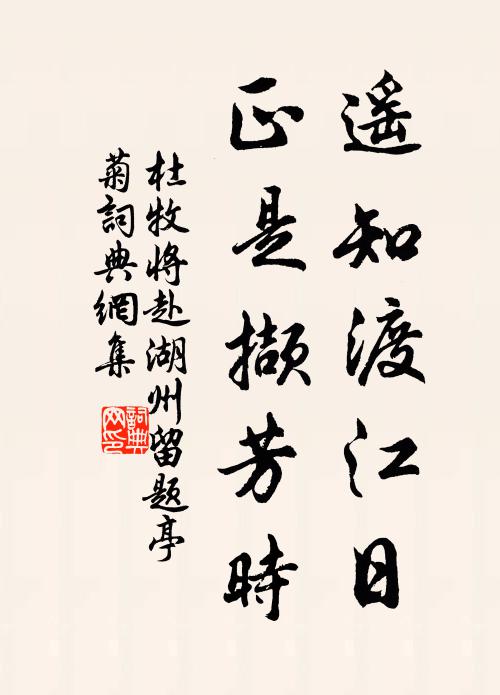 遥知渡江日
正是擷芳時
杜牧將赴湖州留題亭
菊詞典網集
詞典
网印